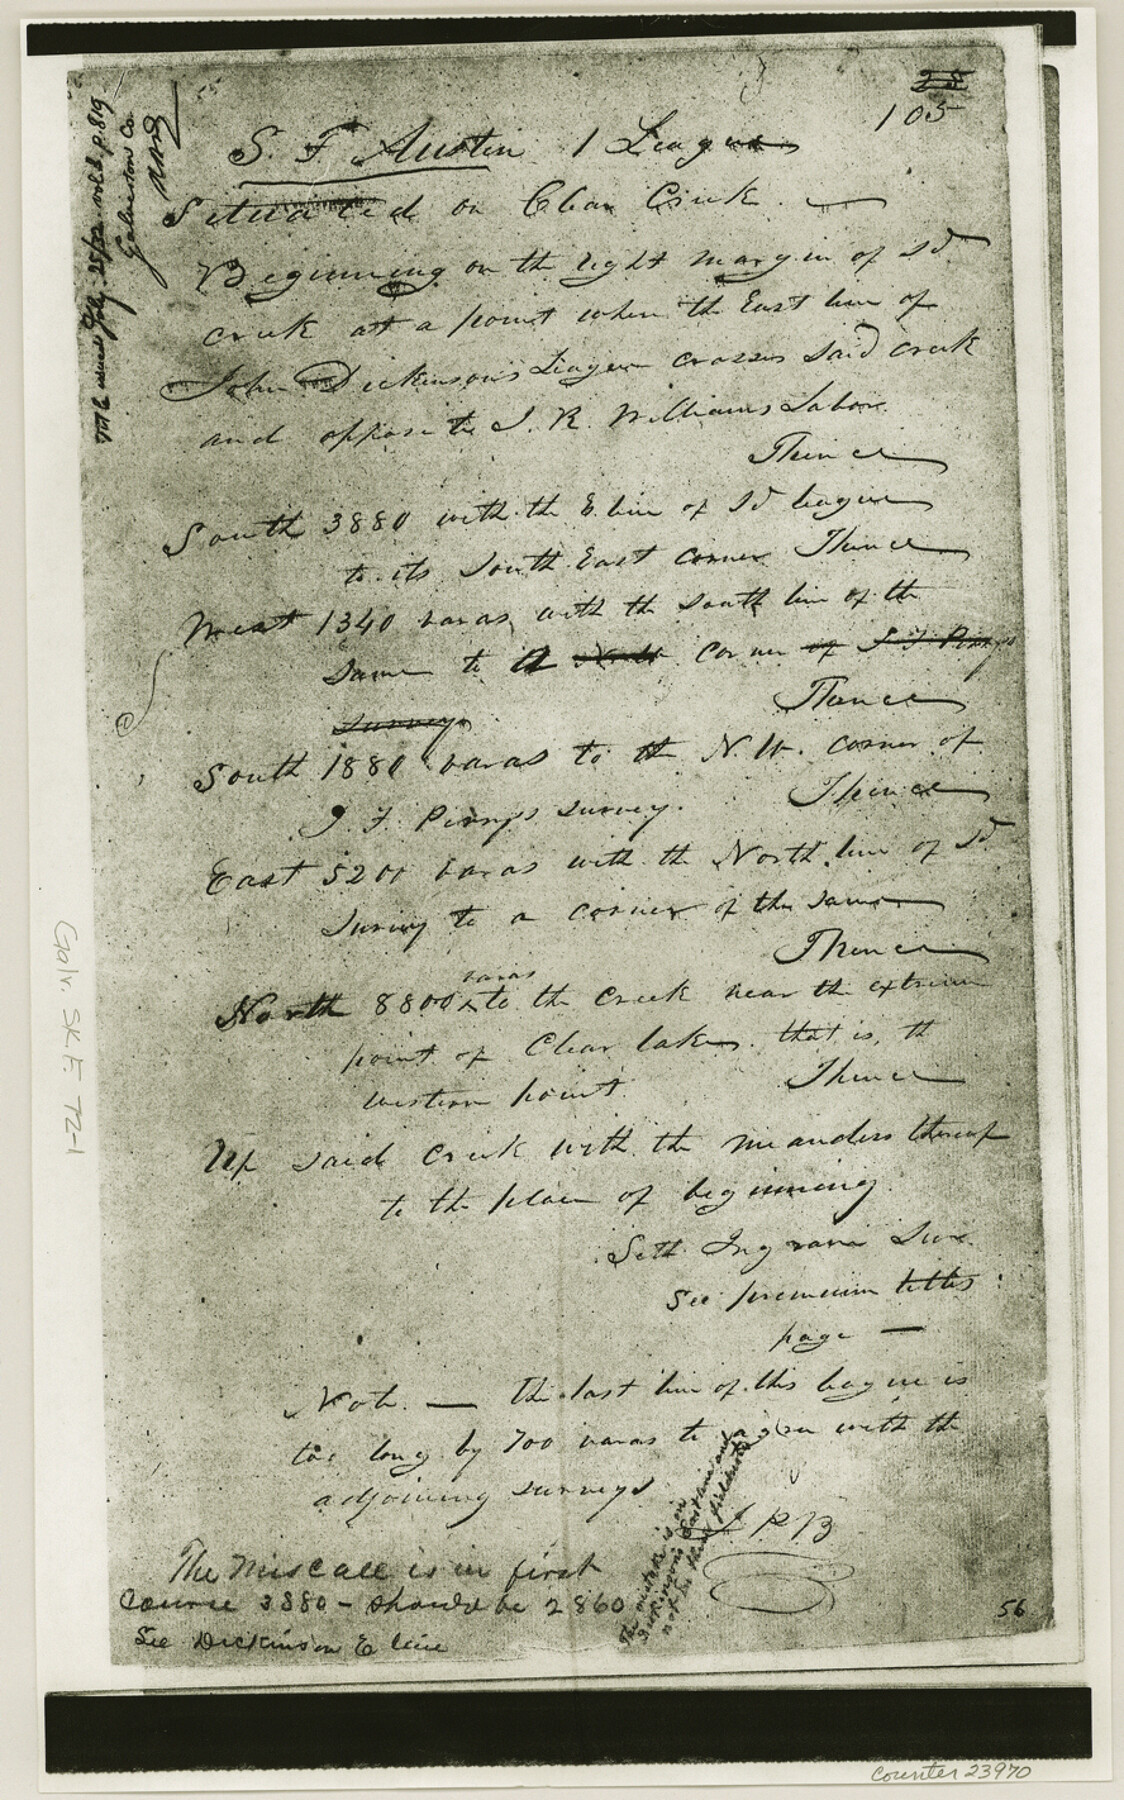 28
105
S. F. Austin 1 League
Situated on Clear Creek.
Beginning on the right margin of sd.
creek at a point where the East line of
John Dickinson's League crosses said creek
and opposite J. R. Williams Labor.
Thence
South 3880 with the E. line of sd league
to its South East corner Thence
West 1340 varas, with the south line of the
same to a North corner of J F Pirrys
surveys
Thence
South 1880 varas to the N. W. corner of
J. F. Pirrys survey. Thence
East 5200 varas with the North line of sd
survey to a corner of the same
Thence
varas
North 8800 ^ to the creek near the extreme
point of Clear lake that is, the
western point. Thence
Up said creek with the meanders thereof
to the place of beginning.
Seth Ingram Sur.
See premium titles
page —
Note. — The last line of this league is
too long by 700 varas to agree with the
adjoining surveys
P B
The Miscall is in first
Course 3880 - should be 2860
See Dickinson E line
The mistake is in
Dickinson's East line and
not in these fieldnotes
56
Title issued July 25/32 vol. 2 p. 819
Galveston Co.
Galv. SK. F. 72-1
Counter 23970